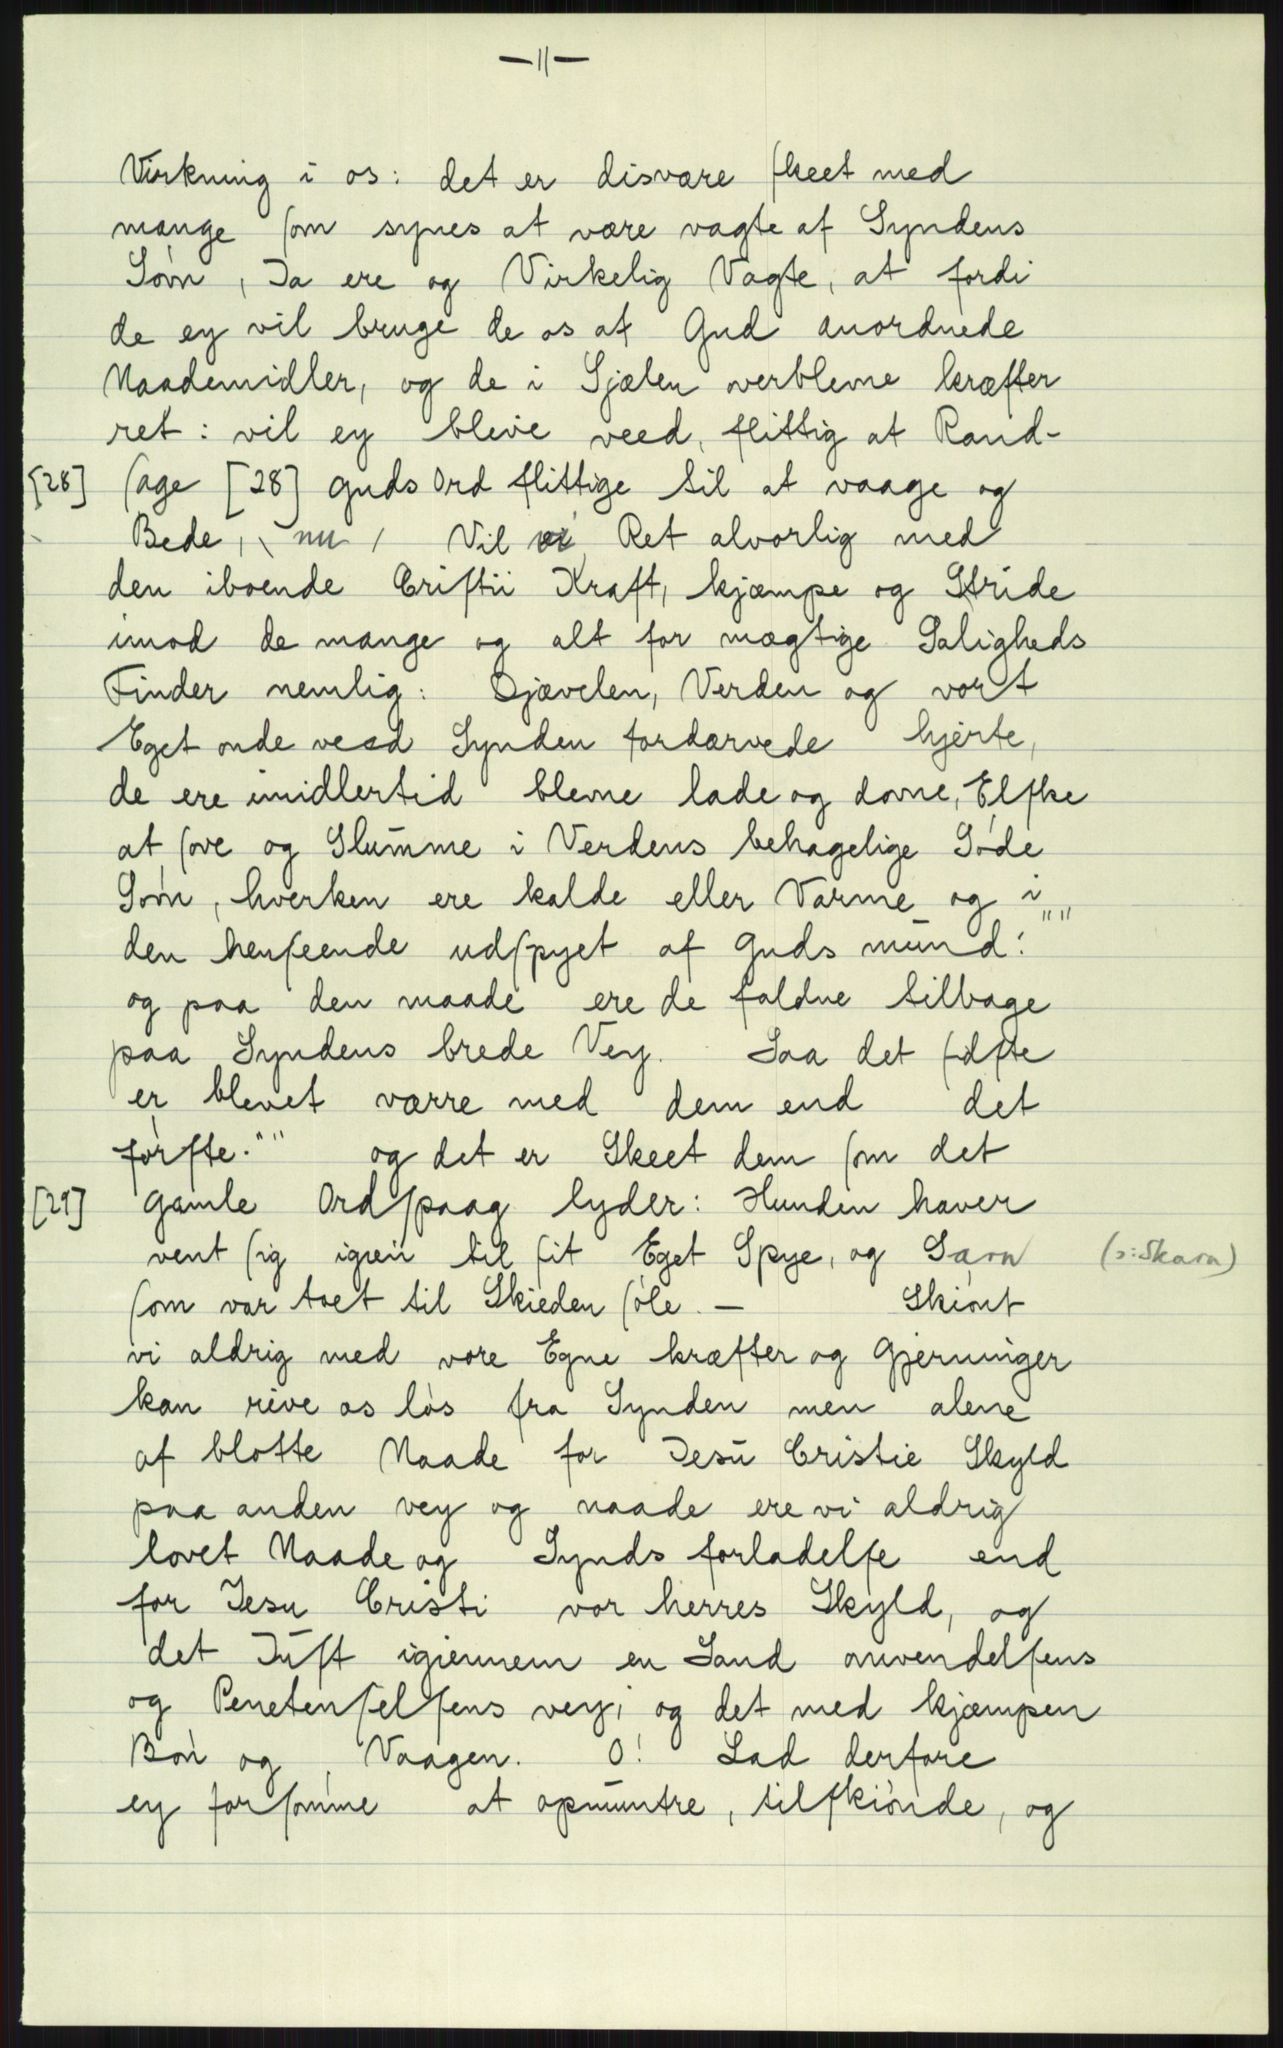 — 11 —
Virkning i os: det er disvære skeet med
mange som synes at være vagte af Syndens
Søvn, Ja ere og Virkelig Vagte, at fordi
de ey vil bruge de os af Gud anordnede
Naademidler, og de i Sjælen overblevne kræfter
ret: vil ey blive veed, flittig at Rand-
[28] sage [28] Guds Ord flittige til at vaage og
Bede, nu, Vil Ret alvorlig med
den iboende Cristii Kraft, kjæmpe og Stride
imod de mange og alt for mægtige Saligheds
Finder nemlig: Djævelen, Verden og vort
Eget onde veed Synden fordærvede hjerte,
de ere imidlertid blevne lade og dovne, Elske
at sove og Slumme i Verdens behagelige Søde
Søvn, hverken ere kalde eller Varme og i
den henseende udspyet af Guds mund: "" 
og paa den maade ere de faldne tilbage
paa Syndens brede Vey. Saa det sidste
er blevet værre med dem end det
første."" og det er Skeet dem som det
[29] gamle Ordspaag lyder: Hunden haver
vent sig igien til sit Eget Spye, og Sarn (ɔ: Skarn)
som var toet til Skieden søle. — Skiønt
vi aldrig med vore Egne kræfter og Gjerninger
kan rive os løs fra Synden men alene
af blotte Naade for Jesu Cristie Skyld
paa anden vey og naade ere vi aldrig
lovet Naade og Synds forladelse end
for Jesu Cristi vor herres Skyld, og
det Just igiennem en Sand omvendelsens
og Penetenselsens vey; og det med kjæmpen
Bøn og, Vaagen. O! Lad derfore
ey forsømme at opmuntre, tilskiønde, og